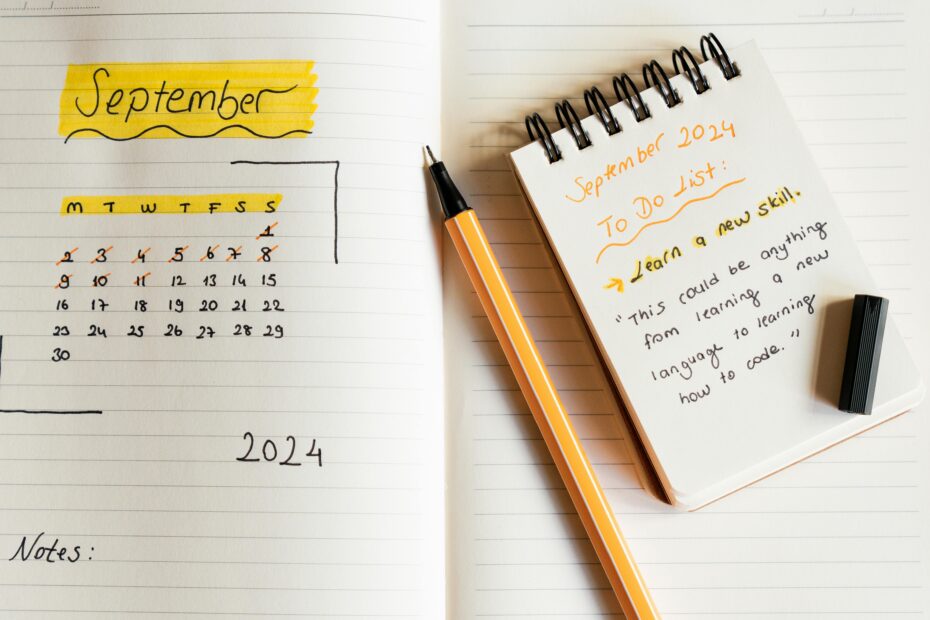 September
M T W T F S S
1
2 3 4 5 6 7 8
9 10 11 12 13 14 15
16 17 18 19 20 21 22
23 24 25 26 27 28 29
30
2024
Notes:
September 2024
To Do List:
→ Learn a new skill.
"This could be anything
from learning a new
language to learning
how to code."